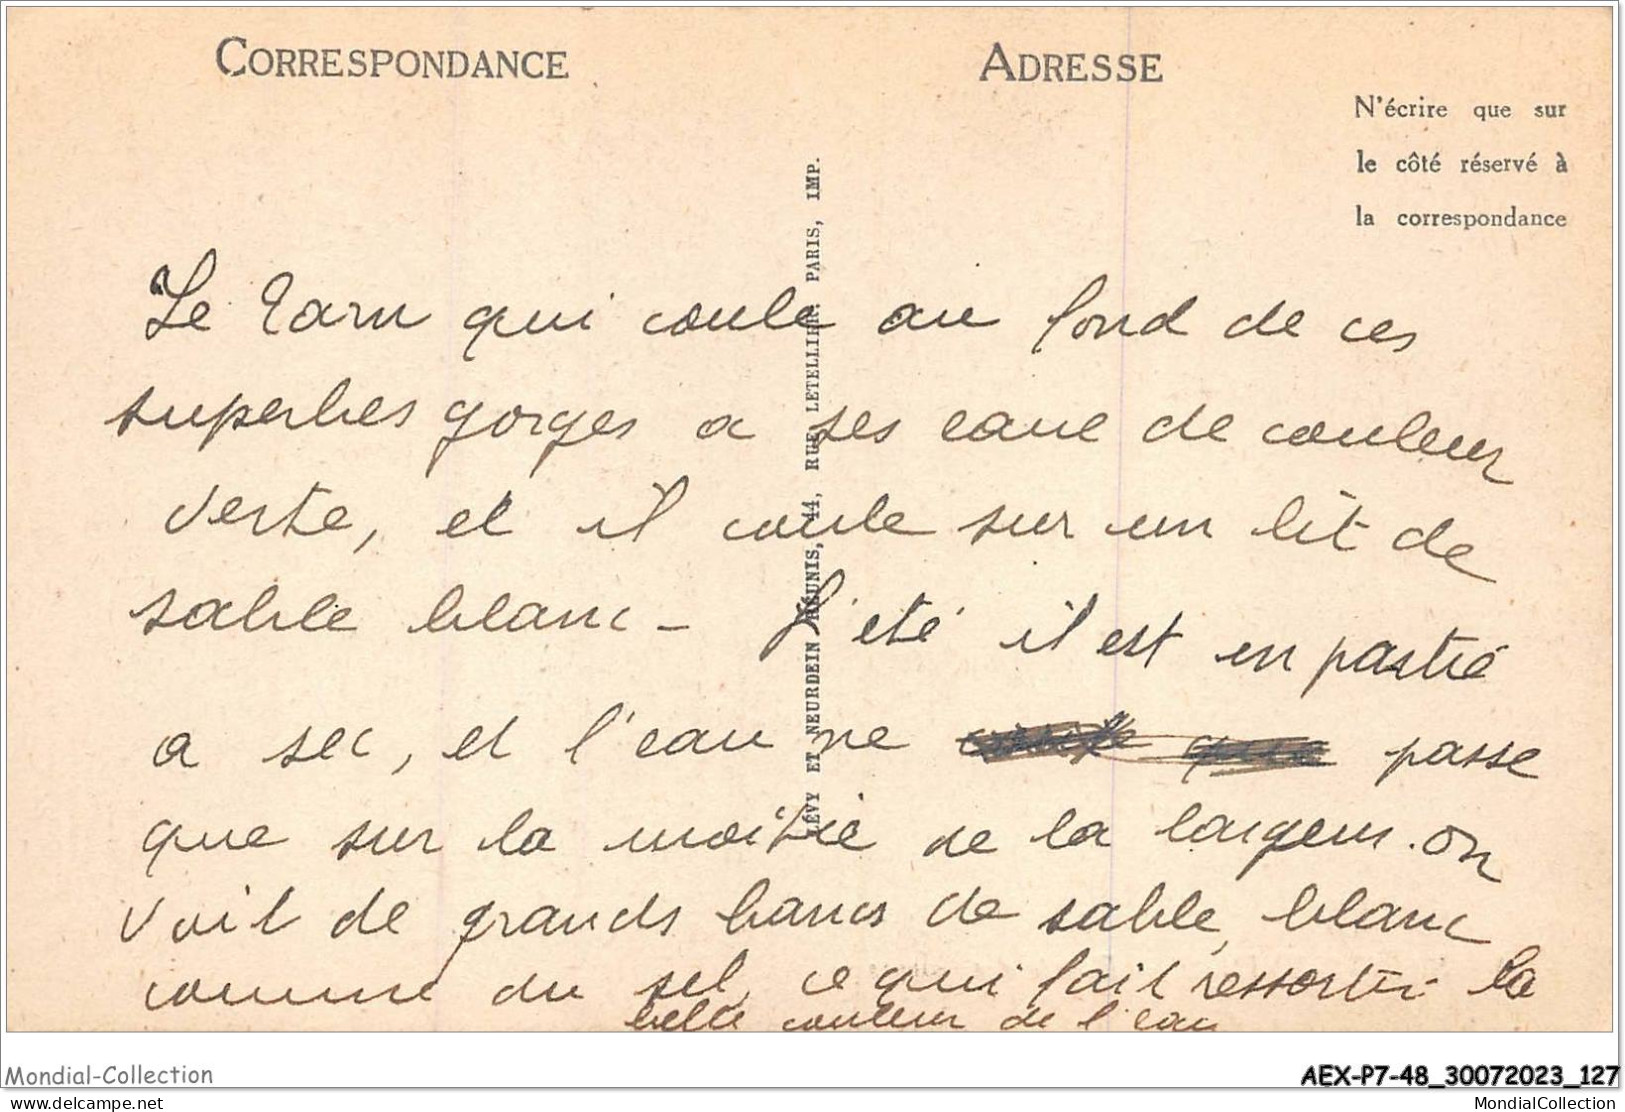 CORRESPONDANCE
ADRESSE
N'écrire que sur
le côté réservé à
la correspondance
LÉVY ET NEURDEIN RÉUNIS, 44, RUE LETELLIER, PARIS, IMP.
Le Tarn qui coule au fond de ces
superbes gorges a ses eaux de couleur
verte, et il coule sur un lit de
sable blanc - L'été il est en partie
a sec, et l'eau ne passe
que sur la moitie de la largeur. On
voit de grands bancs de sable, blanc
comme du sel, ce qui fait ressortir la
belle couleur de l'eau
Mondial-Collection
AEX-P7-48_30072023_127
www.delcampe.net
MondialCollection